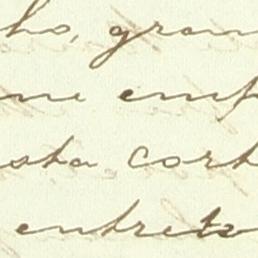 ho, gran
me emp
sta cort
entreto